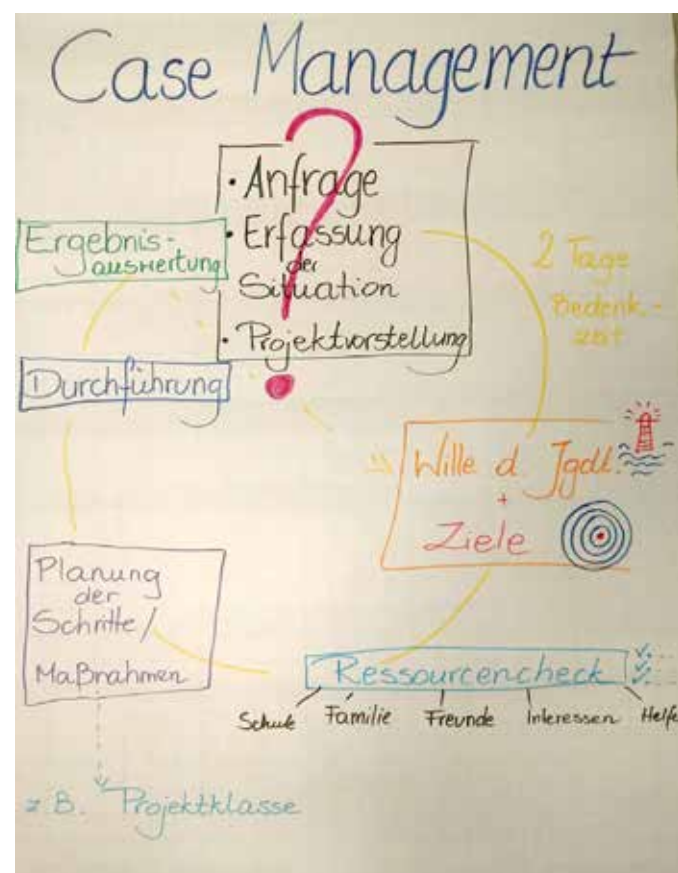 Case Management
?
• Anfrage
• Erfassung
der
Situation
• Projektvorstellung
2 Tage
Bedenk-
zeit
Wille d. Jgdl.
+
Ziele
Ressourcencheck
Schule Familie Freunde Interessen Helfe
Planung
der
Schritte/
Maßnahmen
z B. Projektklasse
Durchführung
Ergebnis-
auswertung